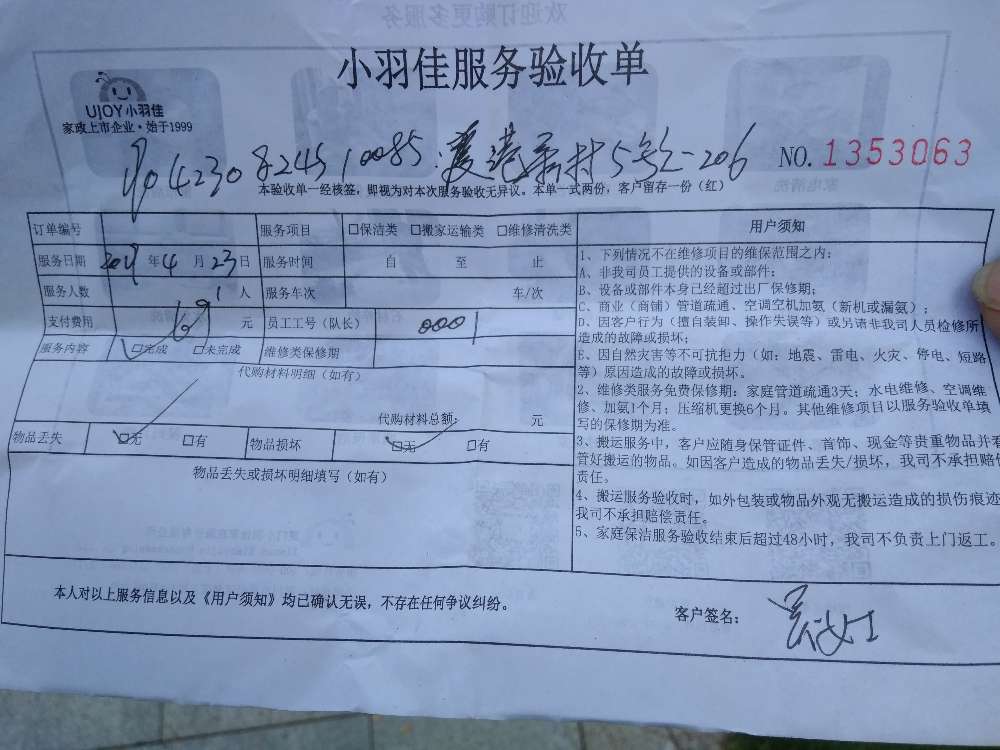 小羽佳服务验收单
UJOY小羽佳
家政上市企业·始于1999
04230824510085 夏港新村5号2-206
NO. 1353063
本验收单一经核签，即视为对本次服务验收无异议。本单一式两份，客户留存一份（红）
订单编号 服务项目 □保洁类 □搬家运输类 □维修清洗类
服务日期 年 4 月 23 日 服务时间 自 至 止
服务人数 1 人 服务车次 车/次
支付费用 69 元 员工工号（队长） 0001
服务内容 □完成 □未完成 维修类保修期
代购材料明细（如有）
代购材料总额： 元
物品丢失 □无 □有 物品损坏 □无 □有
物品丢失或损坏明细填写（如有）
用户须知
1、下列情况不在维修项目的维保范围之内：
A、非我司员工提供的设备或部件；
B、设备或部件本身已经超过出厂保修期；
C、商业（商铺）管道疏通、空调空机加氨（新机或漏氨）；
D、因客户行为（擅自装卸、操作失误等）或另请非我司人员检修所
造成的故障或损坏；
E、因自然灾害等不可抗拒力（如：地震、雷电、火灾、停电、短路
等）原因造成的故障或损坏。
2、维修类服务免费保修期：家庭管道疏通3天；水电维修、空调维
修、加氨1个月；压缩机更换6个月。其他维修项目以服务验收单填
写的保修期为准。
3、搬运服务中，客户应随身保管证件、首饰、现金等贵重物品并看
管好搬运的物品。如因客户造成的物品丢失/损坏，我司不承担赔偿
责任。
4、搬运服务验收时，如外包装或物品外观无搬运造成的损伤痕迹
我司不承担赔偿责任。
5、家庭保洁服务验收结束后超过48小时，我司不负责上门返工。
本人对以上服务信息以及《用户须知》均已确认无误，不存在任何争议纠纷。
客户签名： 吴女士